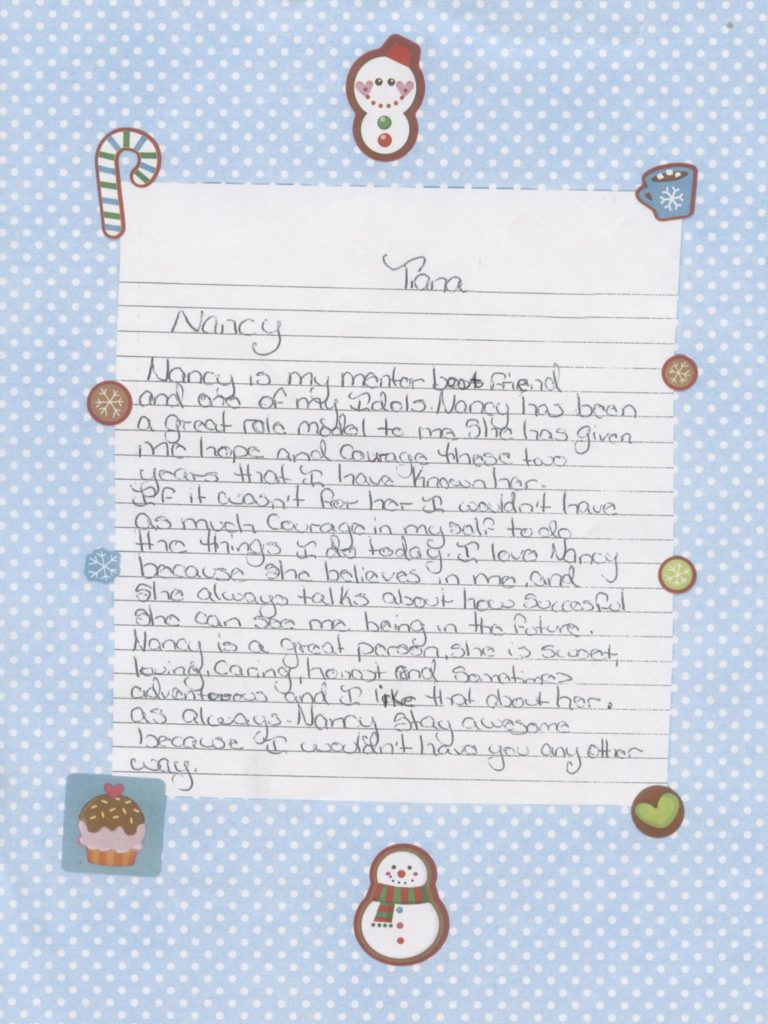 Tiana
Nancy
Nancy is my mentor best friend
and one of my Idols. Nancy has been
a great role model to me She has given
me hope and courage these two
years that I have known her.
If it wasn't for her I wouldn't have
as much courage in my self to do
the things I do today. I love Nancy
because she believes in me and
She always talks about how succesful
she can see me being in the future.
Nancy is a great person, she is sweet,
loving, caring, honest and sometimes
and I like that about her.
as always. Nancy stay awesome
because I wouldn't have you any other
way.